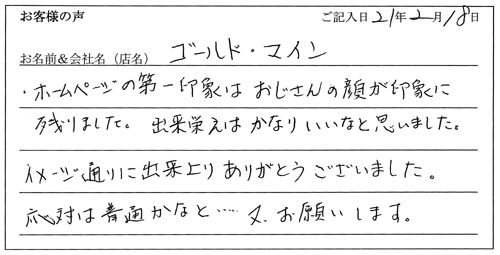 お客様の声 ご記入日21年2月18日
お名前＆会社名（店名） ゴールド・マイン
・ホームページの第一印象はおじさんの顔が印象に
残りました。出来栄えはかなりいいなと思いました。
イメージ通りに出来上りありがとうございました。
応対は普通かなと…‥又、お願いします。